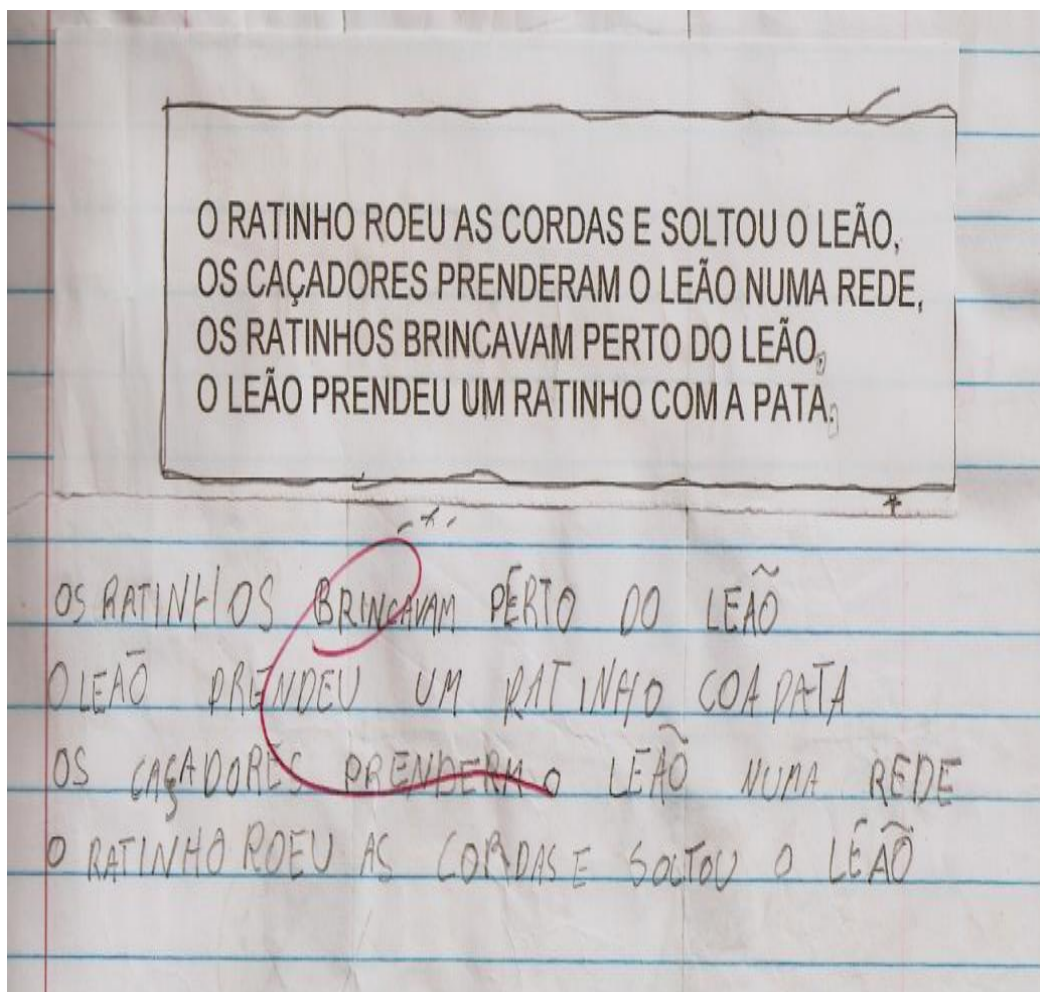 O RATINHO ROEU AS CORDAS E SOLTOU O LEÃO,
OS CAÇADORES PRENDERAM O LEÃO NUMA REDE,
OS RATINHOS BRINCAVAM PERTO DO LEÃO,
O LEÃO PRENDEU UM RATINHO COM A PATA.
OS RATINHOS BRINCAVAM PERTO DO LEÃO
O LEÃO PRENDEU UM RATINHO COA PATA
OS CAÇADORES PRENDERM O LEÃO NUMA REDE
O RATINHO ROEU AS CORDAS E SOLTOU O LEÃO